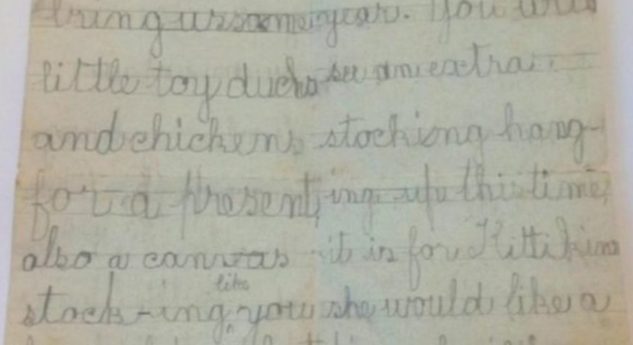 bring us some
little toy ducks
and chickens
for a present,
also a canvas
stock-ing like
year. You will
see an extra
stocking hang-
ing up this time,
it is for Kittikins
you she would like a